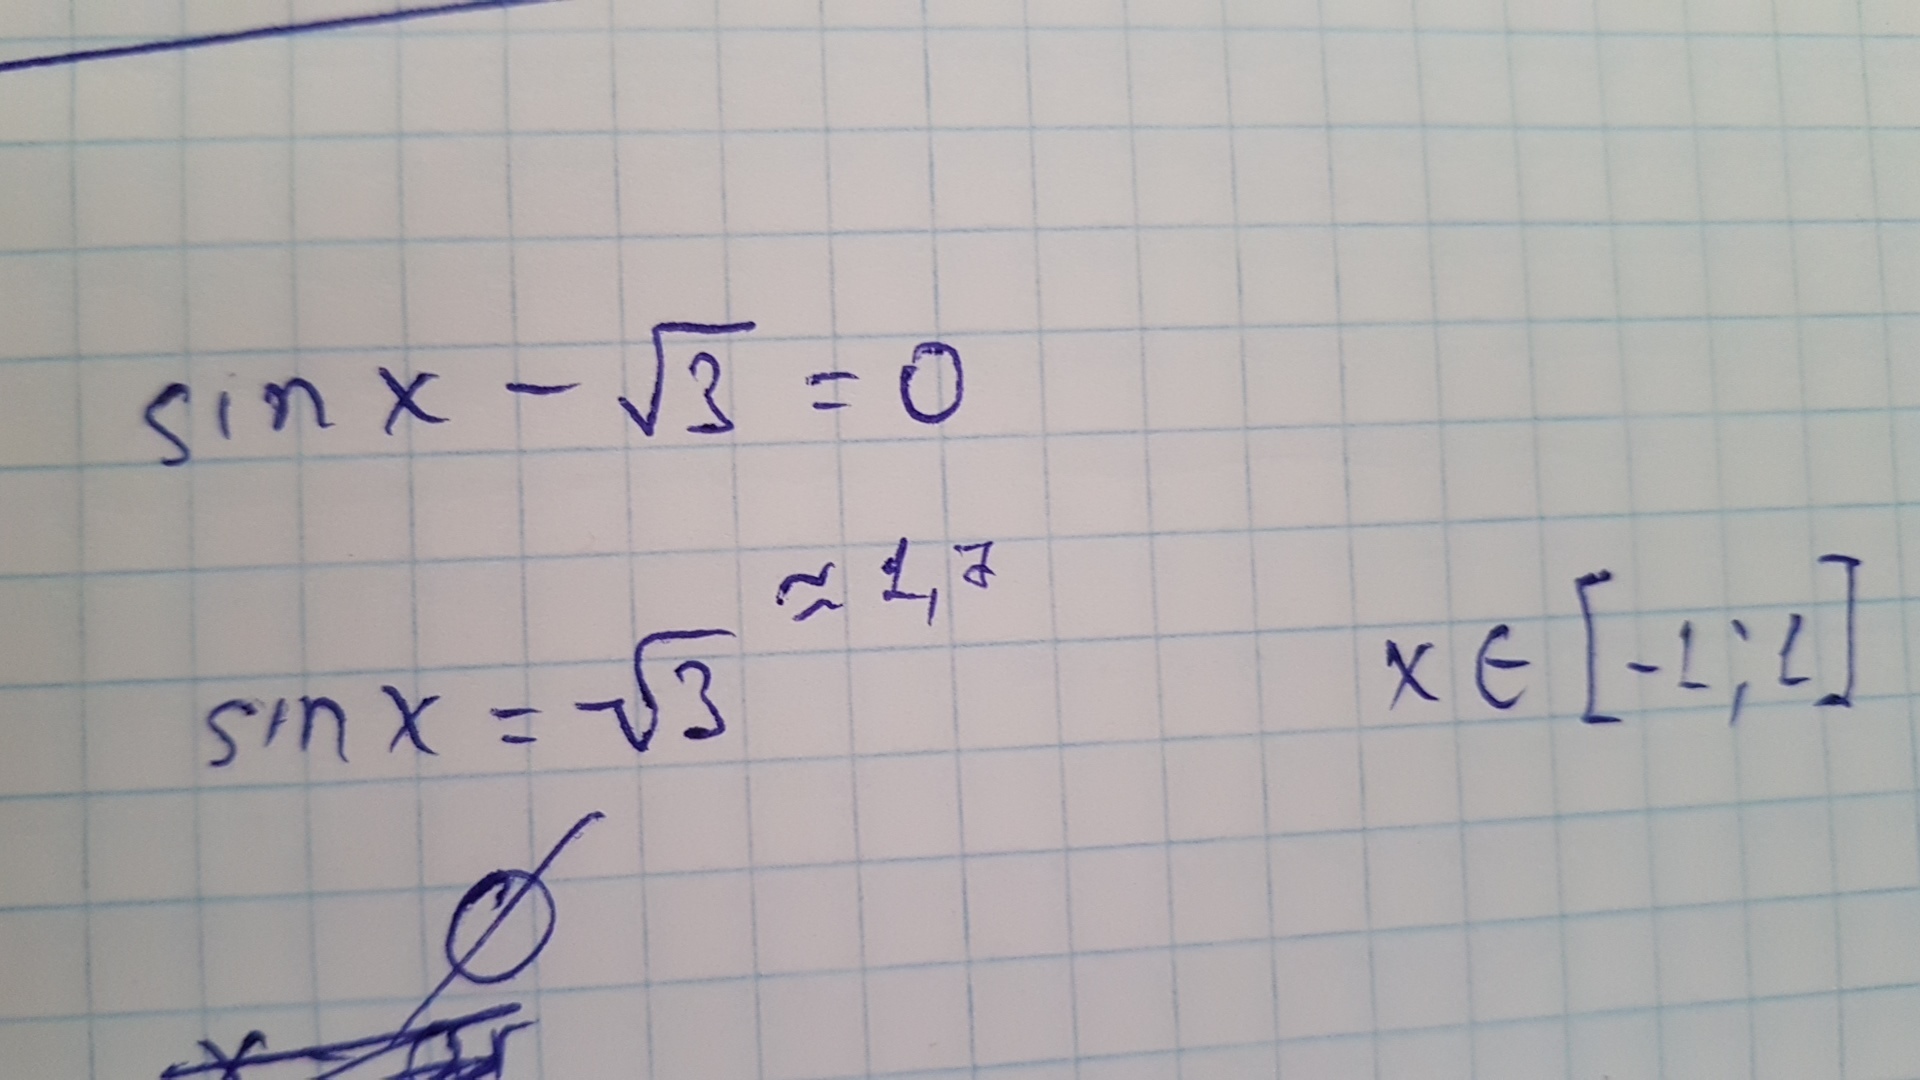 sin x - √3 = 0
≈ 1,7
sin x = √3
x ∈ [-1; 1]
∅